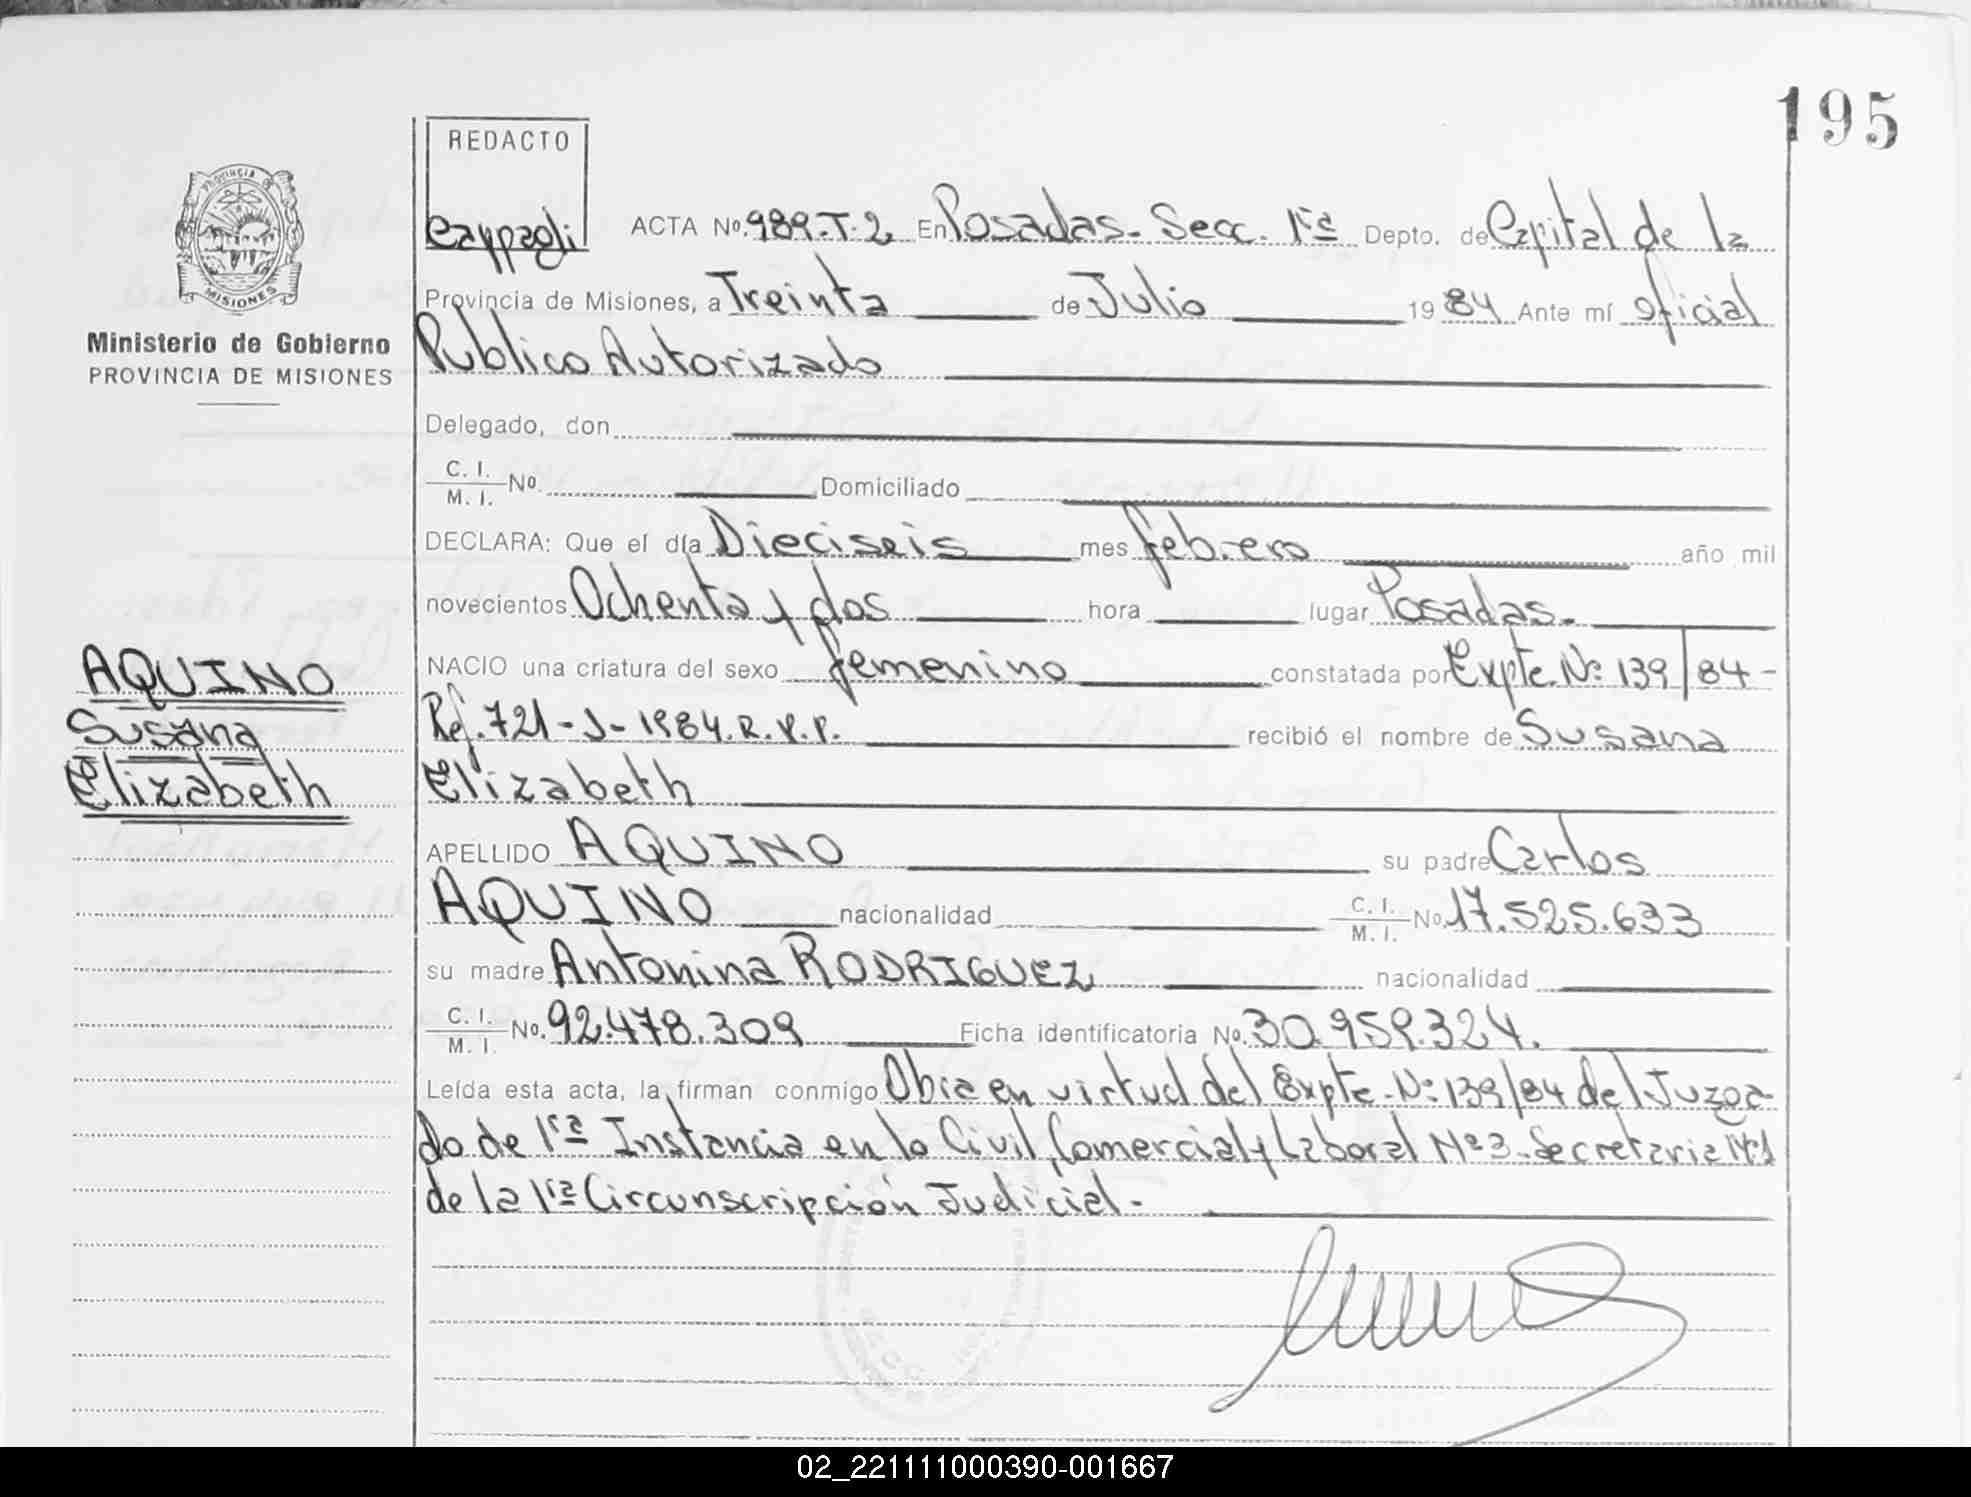 195
REDACTO
PROVINCIA DE
MISIONES
Ministerio de Gobierno
PROVINCIA DE MISIONES
ACTA Nº 989-T-2 En Posadas- Secc. 1ra Depto. de Capital de la
Provincia de Misiones, a Treinta de Julio 1984 Ante mí Oficial
Publico Autorizado
Delegado, don
C. I.
M. I. Nº. Domiciliado
DECLARA: Que el día Dieciseis mes febrero año mil
novecientos Ochenta y dos hora lugar Posadas.
AQUINO
Susana
Elizabeth
NACIO una criatura del sexo femenino constatada por Expte. Nº 139/84-
Ref. 721-J-1984.R.P.P. recibió el nombre de Susana
Elizabeth
APELLIDO AQUINO su padre Carlos
AQUINO nacionalidad C. I.
M. I. Nº 17.525.633
su madre Antonina RODRIGUEZ nacionalidad
C. I.
M. I. Nº. 92.478.309 Ficha identificatoria Nº. 30.959.324.
Leída esta acta, la firman conmigo Obra en virtud del Expte. Nº 139/84 del Juzga-
do de 1ra Instancia en lo Civil, Comercial y Laboral Nº 3- Secretaria Nº1
de la 1ra Circunscripción Judicial.-
02_221111000390-001667